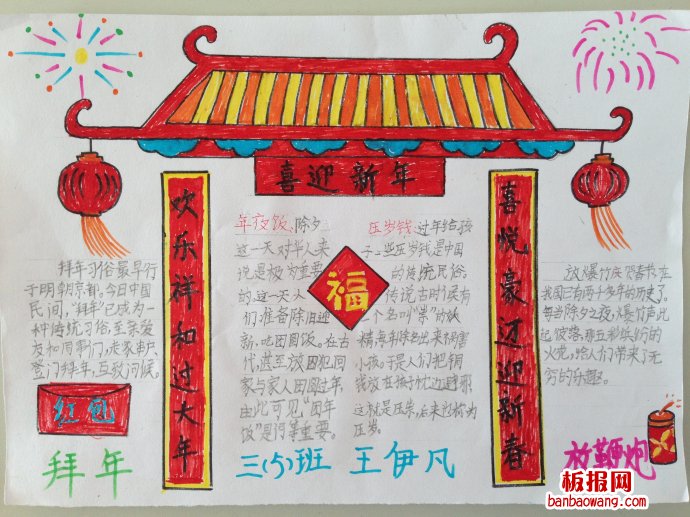 喜迎新年
欢乐祥和过大年
喜悦豪迈迎新春
福
拜年习俗最早行
于明朝京都。今日中国
民间，"拜年"已成为一
种传统习俗，至亲爱
友和同事们，走家串户，
登门拜年，互致问候。
红包
拜年
年夜饭、除夕
这一天对华人来
说是极为重要
的。这一天人
们准备除旧迎
新，吃团圆饭。在古
代，甚至放囚犯回
家与家人团圆过年，
由此可见"团年
饭"是何等重要。
压岁钱：过年给孩
子一些压岁钱是中国
的传统民俗，
传说古时候有
一个名叫"祟"的妖
精点，除夕出来祸害
小孩。于是人们把铜
钱放在孩子枕边避邪
这就是压祟，后来也称为
压岁。
放爆竹庆贺春节，在
我国已有两千多年的历史了。
每当除夕之夜，爆竹声此
起彼落，那五彩缤纷的
火光，给人们带来了无
穷的乐趣。
三(5)班 王伊凡
放鞭炮
板报网
banbaowang.com